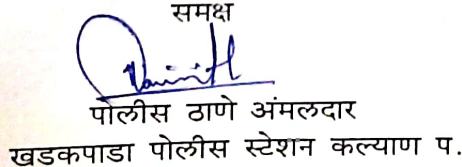 समक्ष
पोलीस ठाणे अंमलदार
खडकपाडा पोलीस स्टेशन कल्याण प.